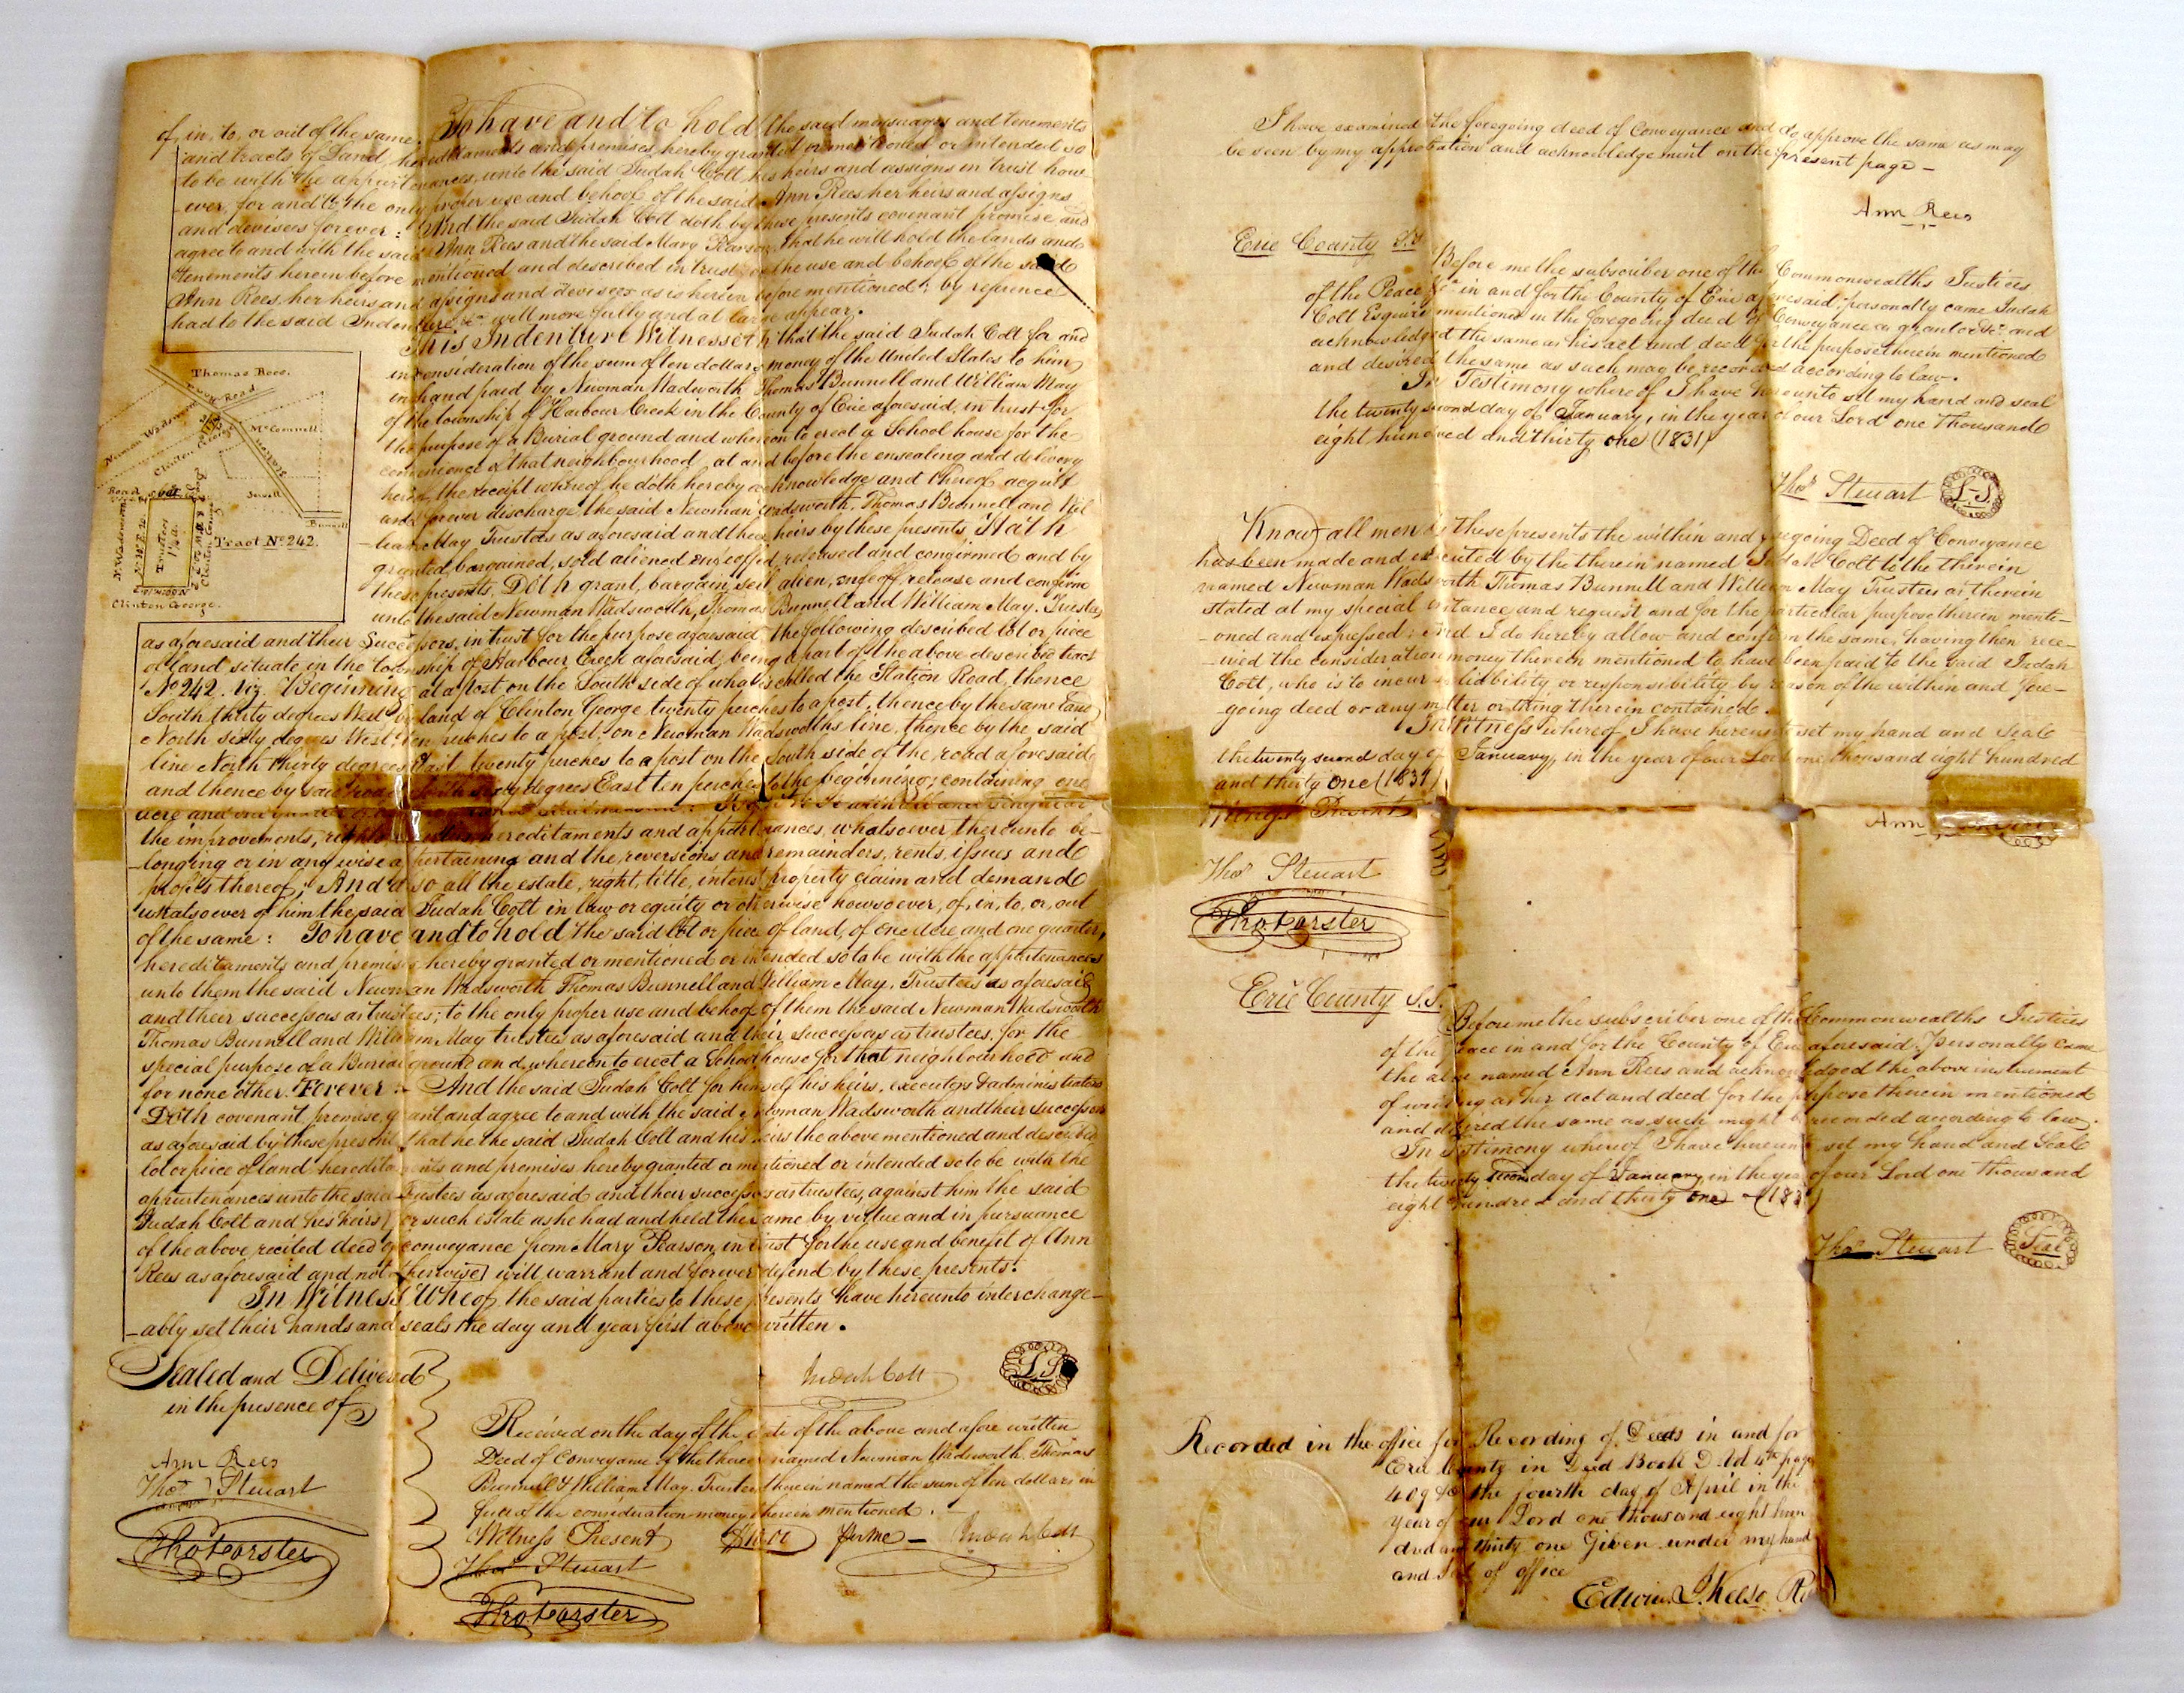 of, in, to, or out of the same. To have and to hold the said messuages and tenements
and tracts of Land hereditaments and premises hereby granted or mentioned or intended so
to be with the appurtenances, unto the said Judah Colt his heirs and assigns in trust how
-ever, for and to the only proper use and behoof of the said Ann Rees her heirs and assigns
and devisees forever: And the said Judah Colt doth by these presents covenant promise and
agree to and with the said Ann Rees and the said Mary Pearson, that he will hold the lands and
tenements herein before mentioned and described in trust for the use and behoof of the said
Ann Rees her heirs and assigns and devisees as is herein before mentioned: by reference
had to the said Indenture &c. will more fully and at large appear.
This Indenture Witnesseth that the said Judah Colt for and
in consideration of the sum of ten dollars money of the United States to him
in hand paid by Newman Wadsworth Thomas Bunnell and William May
of the township of Harbour Creek in the County of Erie aforesaid, in trust for
the purpose of a Burial ground and whereon to erect a School house for the
convenience of that neighbourhood at and before the ensealing and delivery
hereof, the receipt whereof he doth hereby acknowledge and thereof acquit
and forever discharge the said Newman Wadsworth, Thomas Bunnell and Wil
-liam May Trustees as aforesaid and their heirs by these presents, Hath
granted, bargained, sold aliened enfeoffed, released and confirmed and by
these presents, Doth grant, bargain, sell alien, enfeoff, release and confirm
unto the said Newman Wadsworth, Thomas Bunnell and William May. Trustees
Thomas Rees.
Road
Newman Wadsworth
Clinton George
McConnell
Station
Road
Sewell
Bunnell
N. Wadsworth
Trustees
1¼ a.
Clinton George
Tract No. 242.
Clinton George.
as aforesaid and their Successors, in trust for the purpose aforesaid the following described lot or piece
of land situate in the Township of Harbour Creek aforesaid, being a part of the above described tract
No 242. viz. Beginning at a post on the South side of what is called the Station Road, thence
South thirty degrees West by land of Clinton George twenty perches to a post, thence by the same land
North sixty degrees West, ten perches to a post, on Newman Wadsworths line, thence by the said
line North thirty degrees East, twenty perches to a post on the South side of the road aforesaid
and thence by said road South sixty degrees East ten perches to the beginning; containing one
acre and one quarter of
the improvements, rights hereditaments and appurtenances, whatsoever thereunto be-
-longing or in any wise appertaining and the reversions and remainders, rents, issues and
profits thereof; And also all the estate, right, title, interest property claim and demand
whatsoever of him the said Judah Colt in law or equity or otherwise howsoever, of, in, to, or, out
of the same: To have and to hold the said lot or piece of land, of one acre and one quarter,
hereditaments and premises hereby granted or mentioned or intended so to be with the appurtenances
unto them the said Newman Wadsworth Thomas Bunnell and William May, Trustees as aforesaid
and their successors as trustees; to the only proper use and behoof of them the said Newman Wadsworth
Thomas Bunnell and William May trustees as aforesaid and their successors as trustees, for the
special purpose of a Burial ground and whereon to erect a School house for that neighbourhood and
for none other. Forever:- And the said Judah Colt for himself his heirs, executors & administrators
Doth covenant, promise, grant and agree to and with the said Newman Wadsworth and their successors
as aforesaid by these presents that he the said Judah Colt and his heirs the above mentioned and described
lot or piece of land hereditaments and premises hereby granted or mentioned or intended so to be with the
appurtenances unto the said Trustees as aforesaid and their successors as trustees, against him the said
Judah Colt and his heirs for such estate as he had and held the same by virtue and in pursuance
of the above recited deed of conveyance from Mary Pearson in trust for the use and benefit of Ann
Rees as aforesaid and not otherwise] will warrant and forever defend by these presents.
In Witness Wheof, the said parties to these presents have hereunto interchange-
-ably set their hands and seals the day and year first above written.
Sealed and Delivered
in the presence of
Judah Colt
L.S.
Ann Rees
Thos. Steuart
Tho Forster
Received on the day of the date of the above and afore written
Deed of Conveyance of the therein named Newman Wadsworth, Thomas
Bunnell & William May. Trustees therein named the sum of ten dollars in
full of the consideration money therein mentioned.
Witness Present $10.00 per me - Judah Colt
Thos. Steuart
Tho Forster
I have examined the foregoing deed of Conveyance and do approve the same as may
be seen by my approbation and acknowledgement on the present page -
Ann Rees
Erie County S.S.
Before me the subscriber one of the Commonwealths Justices
of the Peace &c in and for the County of Erie aforesaid personally came Judah
Colt Esquire mentioned in the foregoing deed of Conveyance as grantor &c. and
acknowledged the same as his act and deed for the purpose therein mentioned
and desired the same as such may be recorded according to law.
In Testimony whereof I have hereunto set my hand and seal
the twenty second day of January, in the year of our Lord one Thousand
eight hundred and thirty one (1831)
Thos. Steuart L.S.
Know all men by these presents the within and foregoing Deed of Conveyance
has been made and executed by the therein named Judah Colt to the therein
named Newman Wadsworth Thomas Bunnell and William May Trustees as, therein
stated at my special instance and request and for the particular purpose therein menti-
-oned and expressed: And I do hereby allow and confirm the same, having then rece-
-ived the consideration money therein mentioned to have been paid to the said Judah
Colt, who is to incur no liability or responsibility by reason of the within and fore-
-going deed or any matter or thing therein contained.
In Witness whereof I have hereunto set my hand and Seale
the twenty second day of January, in the year of our Lord one thousand eight hundred
and thirty one (1831)
Witness Present
Ann
Thos. Steuart
Tho Forster
Erie County S.S.
Before me the subscriber one of the Commonwealths Justices
of the Peace in and for the County of Erie aforesaid, personally came
the above named Ann Rees and acknowledged the above instrument
of writing as her act and deed for the purpose therein mentioned
and desired the same as such might be recorded according to law.
In Testimony whereof I have hereunto set my hand and Seale
the twenty second day of January in the year of our Lord one thousand
eight hundred and thirty one - (1831)
Thos. Steuart Seal
Recorded in the office for Recording of Deeds in and for
Erie County in Deed Book D. Vol 4th page
409 &c the fourth day of April in the
year of our Lord one thousand eight hun
dred and thirty one Given under my hand
and Seal of office
Edwin J. Kelso Rr